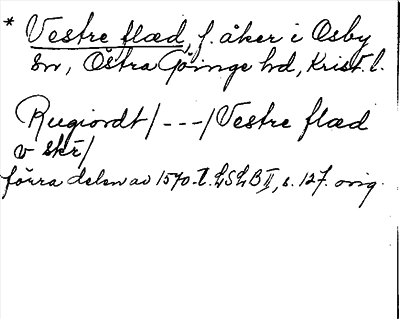 * Vestre flæd, f. åker i Osby
sn, Östra Göinge hd, Krist. l.
Rugiordt/---/Vestre flæd
v skr/
förra delen av 1570-t. LSLB II, s. 127. orig.